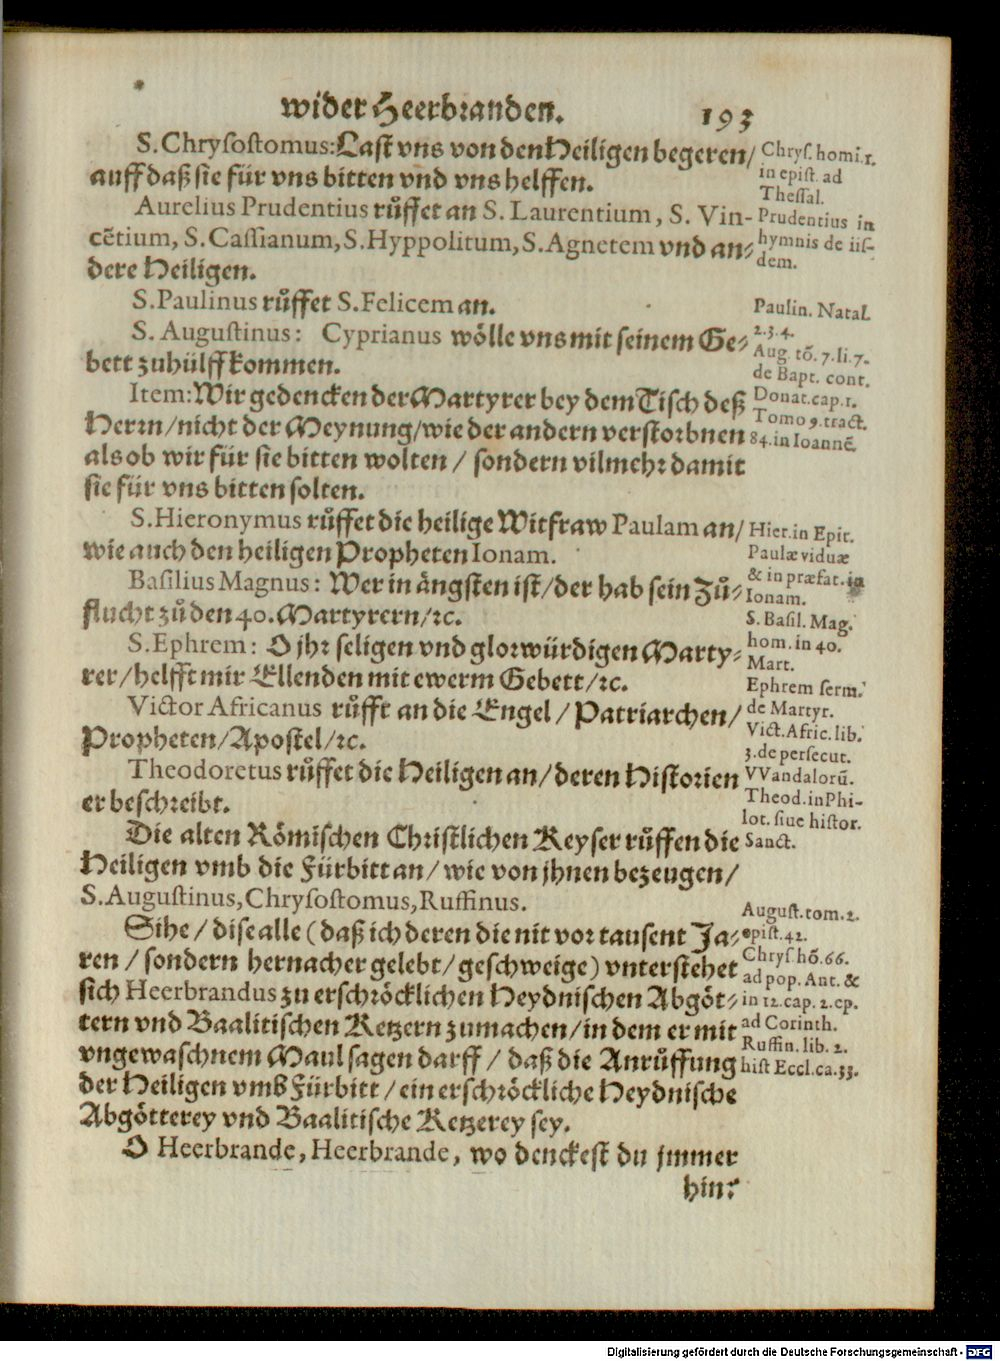 wider Heerbranden. 193
S. Chrysostomus: Last vns von den Heiligen begeren/
auff daß sie für vns bitten vnd vns helffen.
Aurelius Prudentius růffet an S. Laurentium, S. Vin-
cētium, S. Cassianum, S. Hyppolitum, S. Agnetem vnd an-
dere Heiligen.
S. Paulinus růffet S. Felicem an.
S. Augustinus: Cyprianus wölle vns mit seinem Ge-
bett zuhülff kommen.
Item: Wir gedencken der Martyrer bey dem Tisch deß
Herrn/ nicht der Meynung/ wie der andern verstorbnen
als ob wir für sie bitten wolten / sondern vilmehr damit
sie für vns bitten solten.
S. Hieronymus růffet die heilige Witfraw Paulam an/
wie auch den heiligen Propheten Ionam.
Basilius Magnus: Wer in ängsten ist/ der hab sein Zů-
flucht zů den 40. Martyrern/ ꝛc.
S. Ephrem: O jhr seligen vnd glorwürdigen Marty-
rer/ helfft mir Ellenden mit ewerm Gebett/ ꝛc.
Victor Africanus růfft an die Engel / Patriarchen/
Propheten/ Apostel/ ꝛc.
Theodoretus růffet die Heiligen an/ deren Historien
er beschreibt.
Die alten Römischen Christlichen Keyser růffen die
Heiligen vmb die Fürbitt an/ wie von jhnen bezeugen/
S. Augustinus, Chrysostomus, Ruffinus.
Sihe / dise alle (daß ich deren die nit vor tausent Ja-
ren / sondern hernacher gelebt/ geschweige) vnterstehet
sich Heerbrandus zu erschröcklichen Heydnischen Abgöt-
tern vnd Baalitischen Ketzern zumachen/ in dem er mit
vngewaschnem Maul sagen darff / daß die Anrůffung
der Heiligen vmb Fürbitt / ein erschröckliche Heydnische
Abgötterey vnd Baalitische Ketzerey sey.
O Heerbrande, Heerbrande, wo denckest du jmmer
hin?
Chrys. homi. 1.
in epist. ad
Thessal.
Prudentius in
hymnis de iis-
dem.
Paulin. Natal.
2. 3. 4.
Aug. tō. 7. li. 7.
de Bapt. cont.
Donat. cap. 1.
Tomo 9. tract.
84. in Ioannē.
Hier. in Epit.
Paulæ viduæ
& in præfat. in
Ionam.
S. Basil. Mag.
hom. in 40.
Mart.
Ephrem serm.
de Martyr.
Vict. Afric. lib.
3. de persecut.
VVandalorū.
Theod. in Phi-
lot. siue histor.
Sanct.
August. tom. 2.
epist. 42.
Chrys. hō. 66.
ad pop. Ant. &
in 12. cap. 2. ep.
ad Corinth.
Ruffin. lib. 2.
hist Eccl. ca. 33.
Digitalisierung gefördert durch die Deutsche Forschungsgemeinschaft - DFG